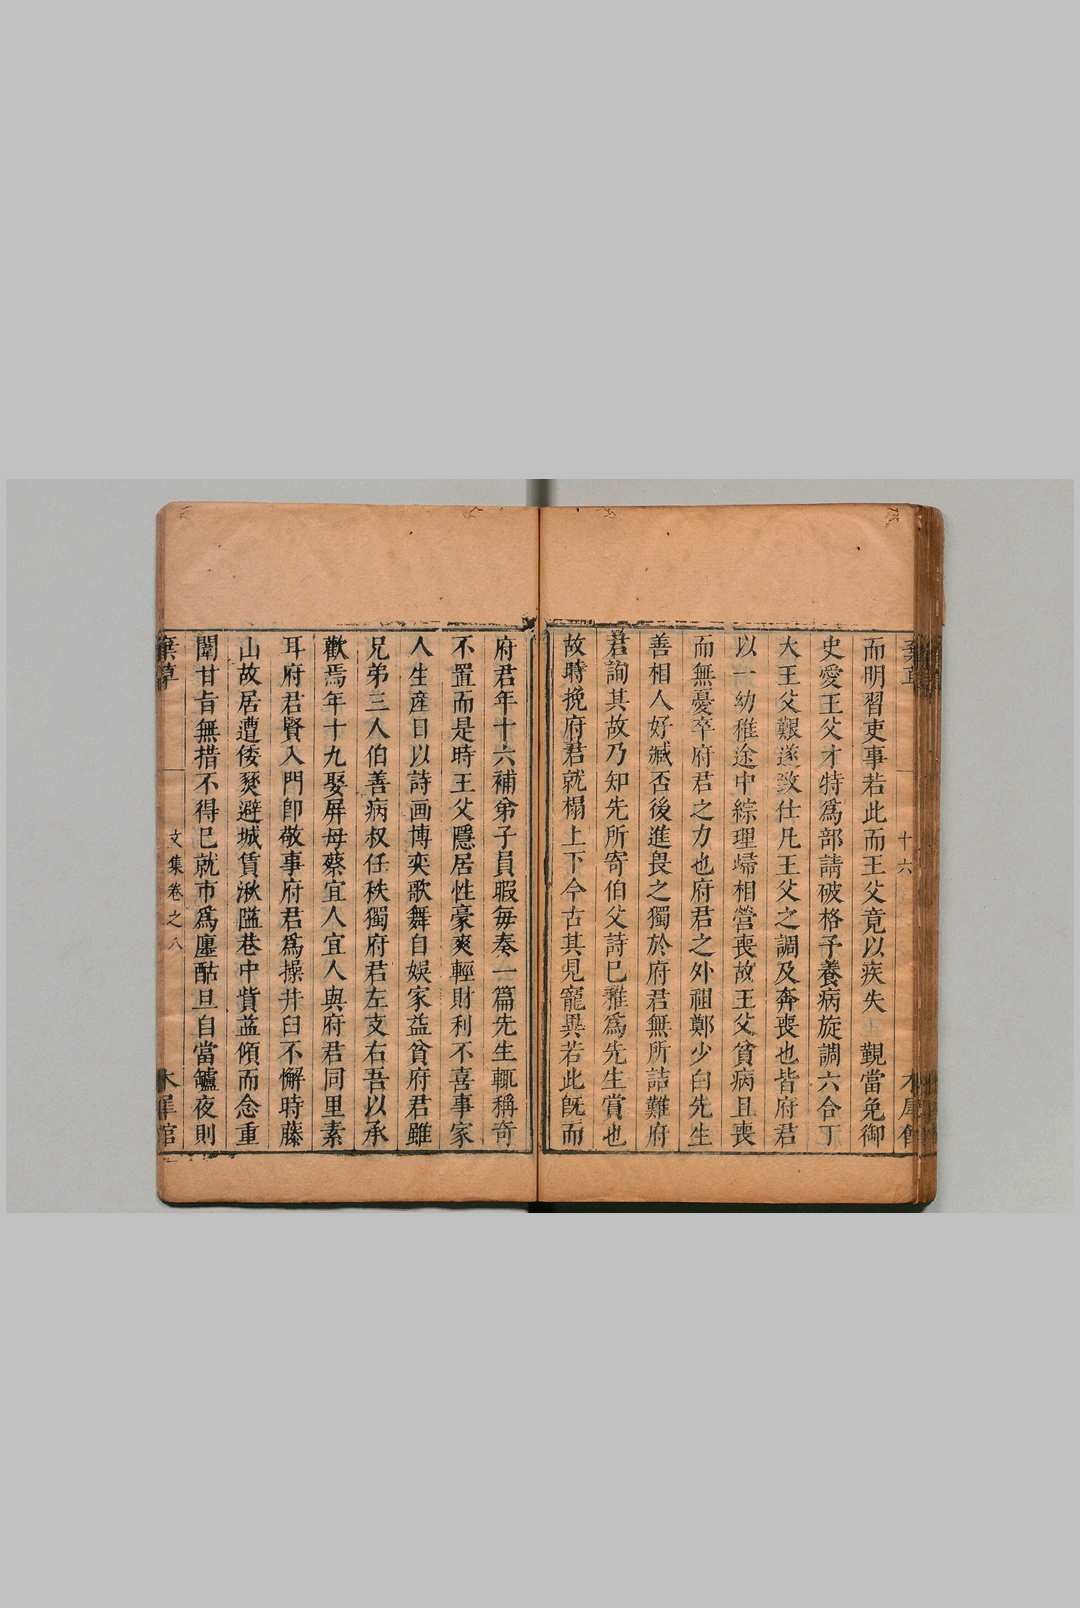 而明習吏事若此而王父竟以疾失 覲當免御
史愛王父才特爲部請破格予養病旋調六合丁
大王父艱遂致仕凡王父之調及奔喪也皆府君
以一幼稚途中綜理歸相營喪故王父貧病且喪
而無憂卒府君之力也府君之外祖鄭少白先生
善相人好臧否後進畏之獨於府君無所詰難府
君詢其故乃知先所寄伯父詩巳雅爲先生賞也
故時挽府君就榻上下今古其見寵異若此旣而
府君年十六補弟子員暇每奏一篇先生輒稱奇
不置而是時王父隱居性豪爽輕財利不喜事家
人生産日以詩画博奕歌舞自娛家益貧府君雖
兄弟三人伯善病叔任秩獨府君左支右吾以承
歡焉年十九娶屏母蔡宜人宜人與府君同里素
耳府君賢入門卽敬事府君爲操井臼不懈時藤
山故居遭倭燹避城賃湫隘巷中貲蓝傾而念重
闈甘旨無措不得巳就市爲廛酤旦自當罏夜則
文集卷之八
十六